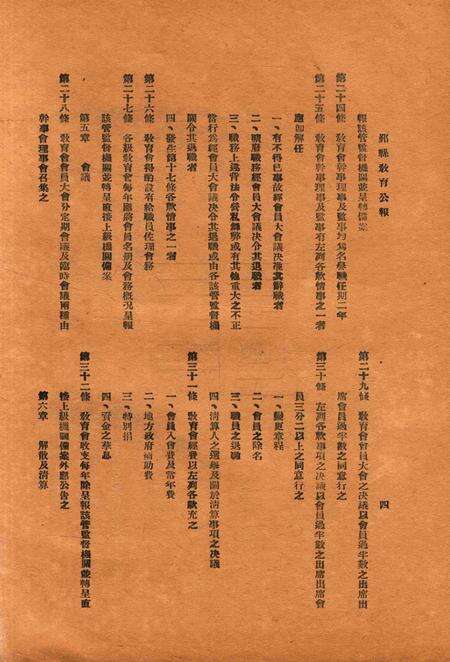 鄞縣教育公報
四
報該管監督機關並轉呈備案
第二十四條　教育會幹事理事及監事均為名譽職任期二年
第二十五條　教育會幹事理事及監事有左列各款情事之一者
應即解任
一、有不得已事故經會員大會議決准其辭職者
二、曠廢職務經會員大會議決令其退職者
三、職務上違背法令營私舞弊或有其他重大之不正
當行為經會員大會議決令其退職或由各該管監督機
關令其退職者
四、發生第十七條各款情事之一者
第二十六條　教育會得酌設有給職員佐理會務
第二十七條　各級教育會每年應將會員名册及會務概況呈報
該管監督機關並轉呈直接上級機關備案
第五章　會議
第二十八條　教育會會員大會分定期會議及臨時會議兩種由
幹事會理事會召集之
第二十九條　教育會會員大會之決議以會員過半數之出席出
席會員過半數之同意行之
第三十條　左列各款事項之決議以會員過半數之出席出席會
員三分二以上之同意行之
一、變更章程
二、會員之除名
三、職員之退職
四、清算人之選舉及關於清算事項之決議
第三十一條　教育會經費以左列各款充之
一、會員入會費及常年費
二、地方政府補助費
三、特別捐
四、資金之孳息
第三十二條　教育會收支每年除呈報該管監督機關並轉呈直
接上級機關備案外應公告之
第六章　解散及清算